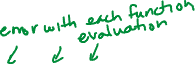 error with each function
evaluation